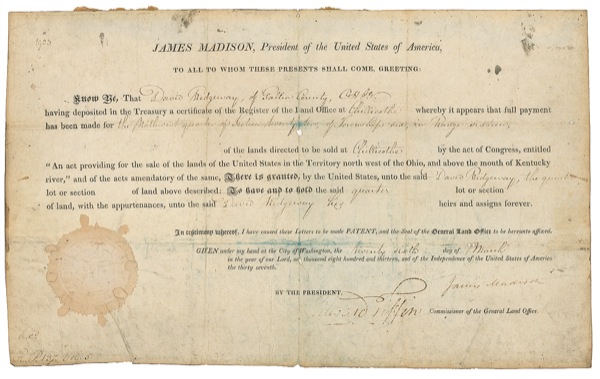 JAMES MADISON, President of the United States of America,
TO ALL TO WHOM THESE PRESENTS SHALL COME, GREETING:
Know Ye, That David Ridgeway of County,
having deposited in the Treasury a certificate of the Register of the Land Office at Chillicothe whereby it appears that full payment
has been made for the quarter of Section of Township in Range
of the lands directed to be sold at Chillicothe by the act of Congress, entitled
“An act providing for the sale of the lands of the United States in the Territory north west of the Ohio, and above the mouth of Kentucky
river,” and of the acts amendatory of the same, There is granted, by the United States, unto the said David Ridgeway, the quarter
lot or section of land above described: To have and to hold the said quarter lot or section
of land, with the appurtenances, unto the said David Ridgeway his heirs and assigns forever.
In testimony whereof, I have caused these Letters to be made PATENT, and the Seal of the General Land Office to be hereunto affixed.
GIVEN under my hand at the City of Washington, the twenty sixth day of March
in the year of our Lord, one thousand eight hundred and thirteen, and of the Independence of the United States of America
the thirty seventh.
BY THE PRESIDENT,
James Madison
Tiffin Commissioner of the General Land Office.